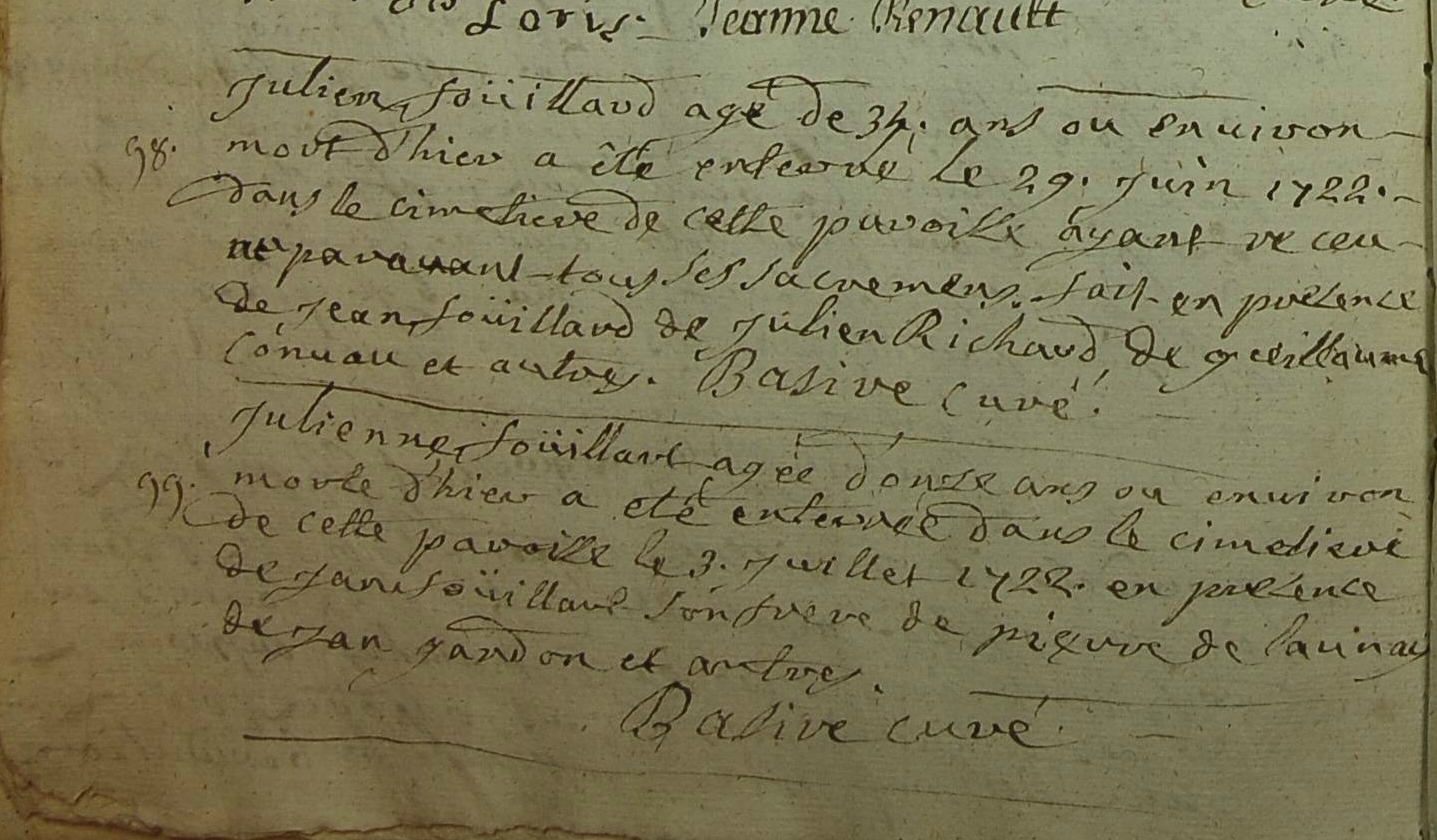 Loris Jeanne Renault
Julien foüillard agé de 34. ans ou enuiron
98. mort d'hier a êté enterré le 29. juin 1722.
dans le cimetiere de cette paroisse ayant receu
auparauant tous ses sacremens. fait en presence
de jean foüillard de julien Richard, de gueillaume
Conuau et autres. Basire curé.
julienne foüillart agée d'onze ans ou enuiron
99. morte d'hier a eté enterrée dans le cimetiere
de cette paroisse le 3. juillet 1722. en presence
de jan foüillart son frere de pierre de launay
de jan jardon et autres.
Basire curé